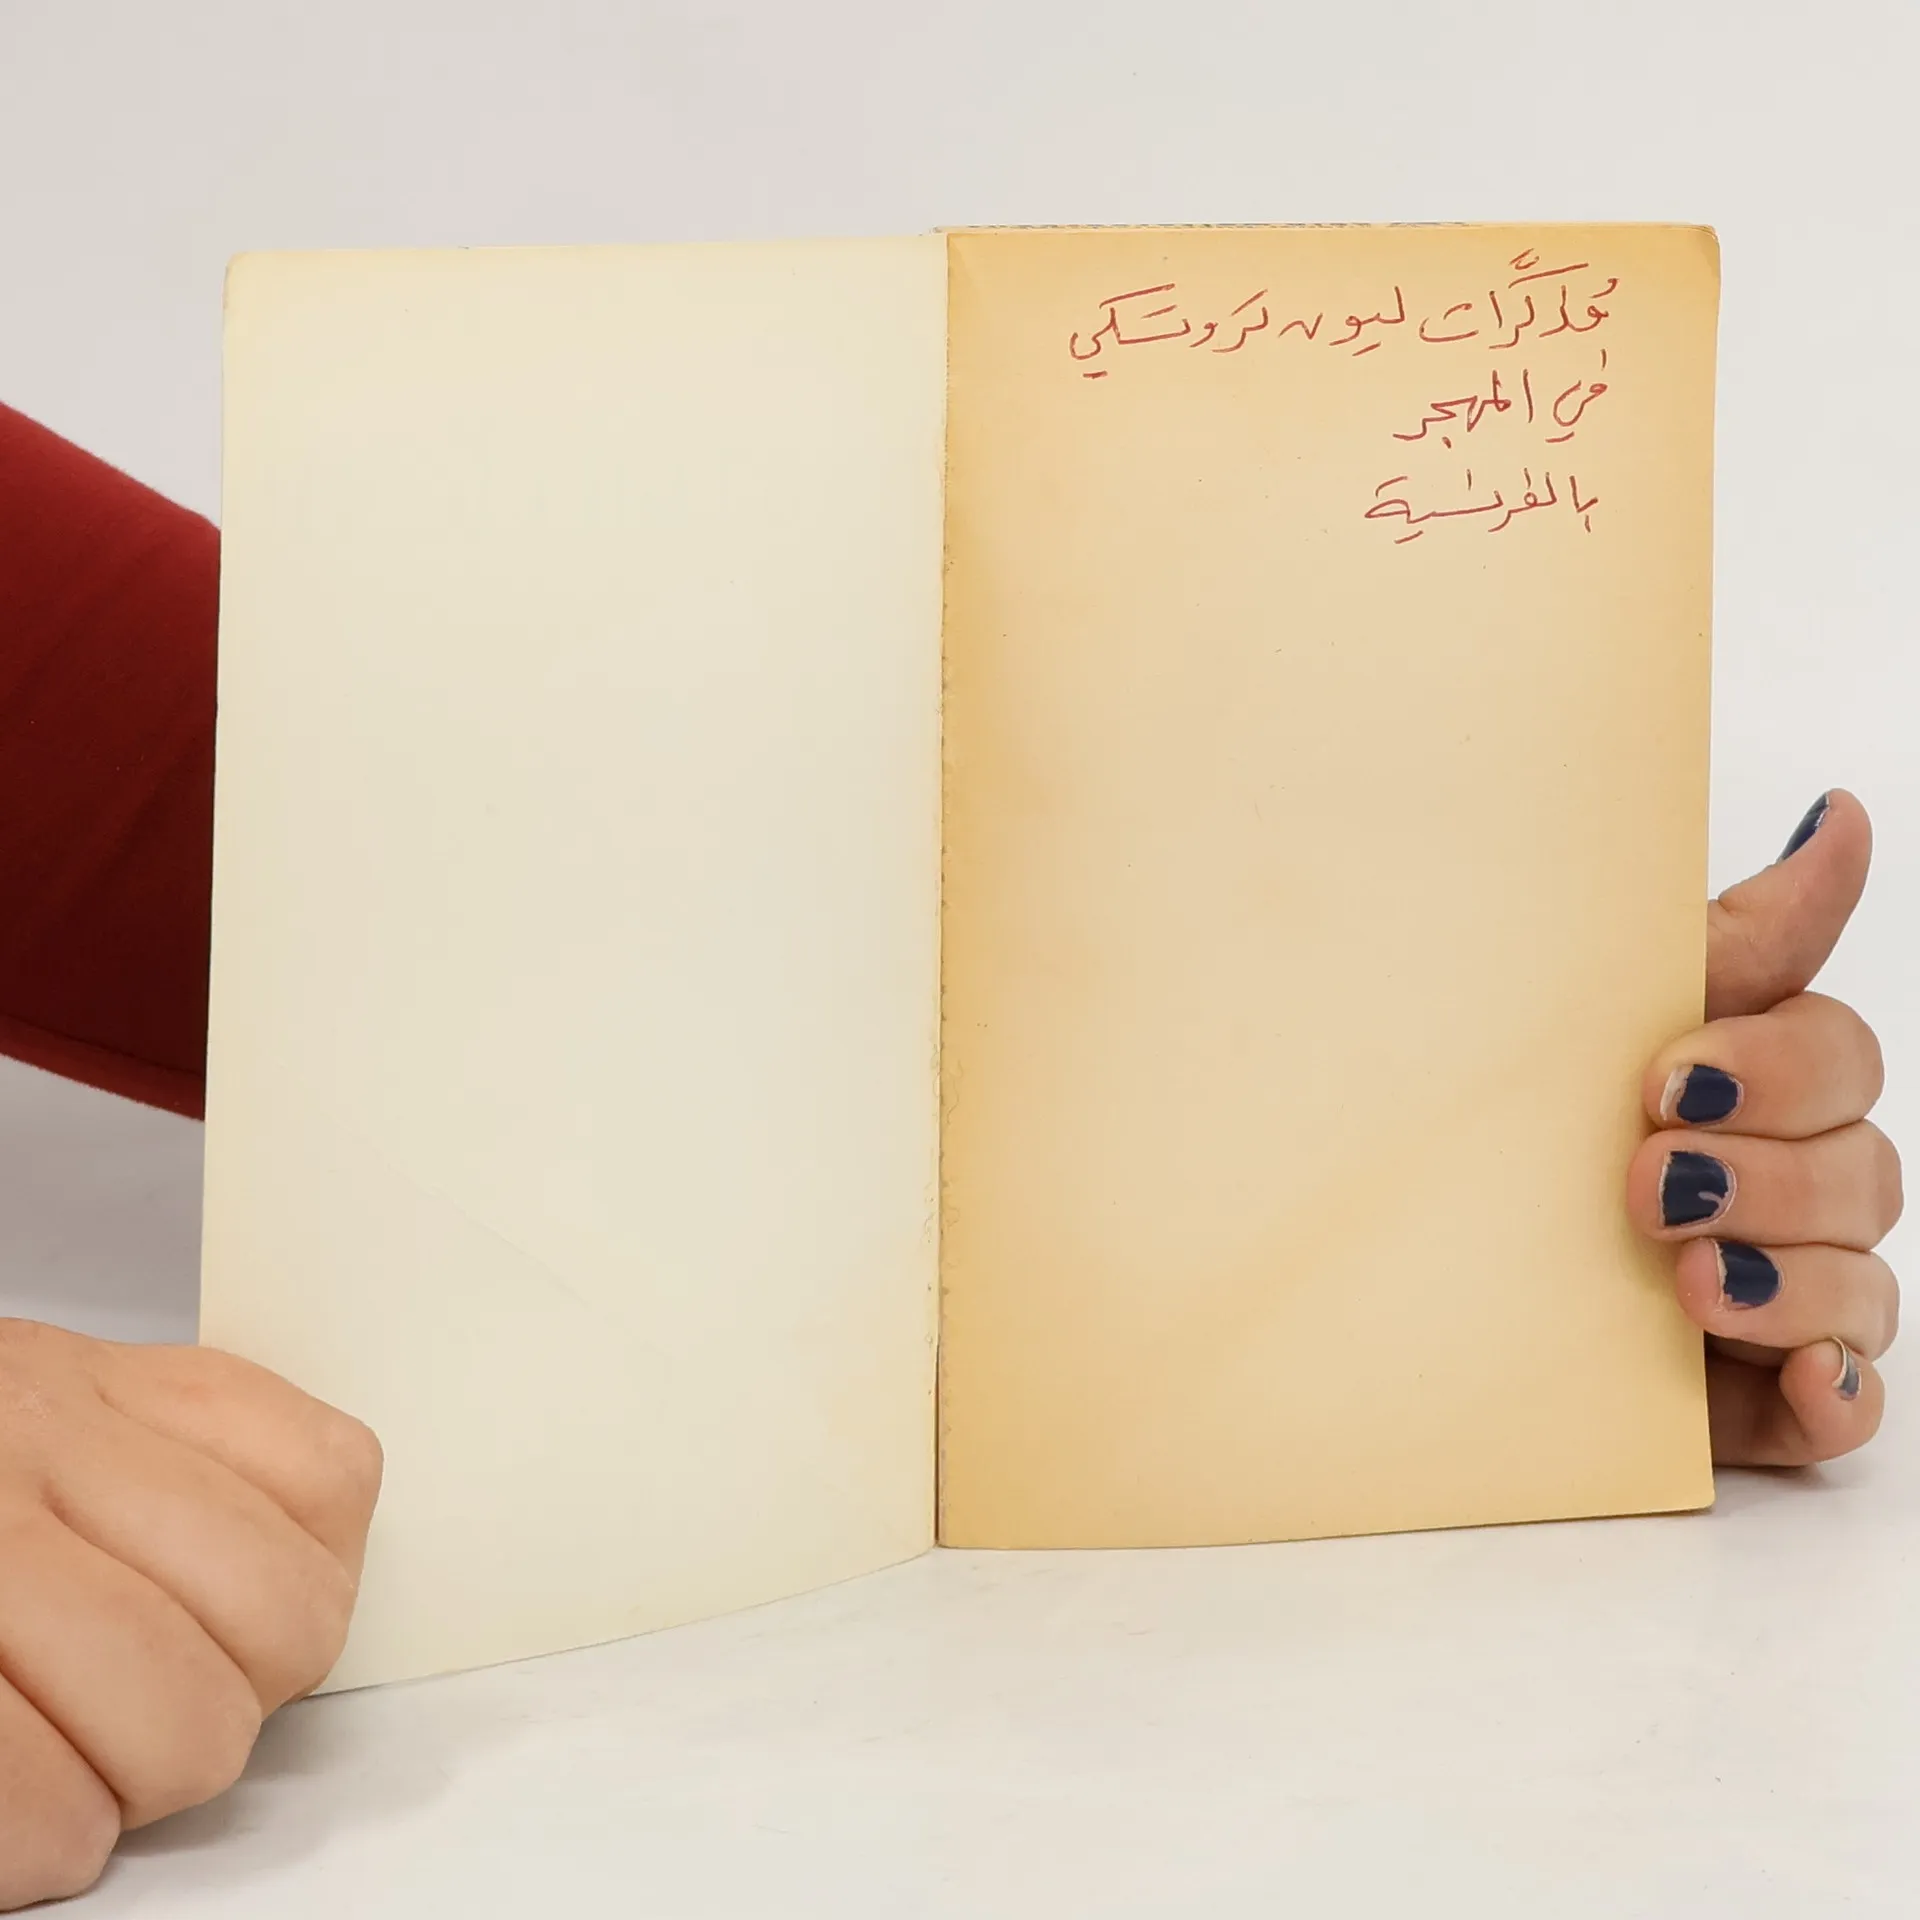 مذكّرات ليون تروتسكي
في المهجر
بالفرنسية